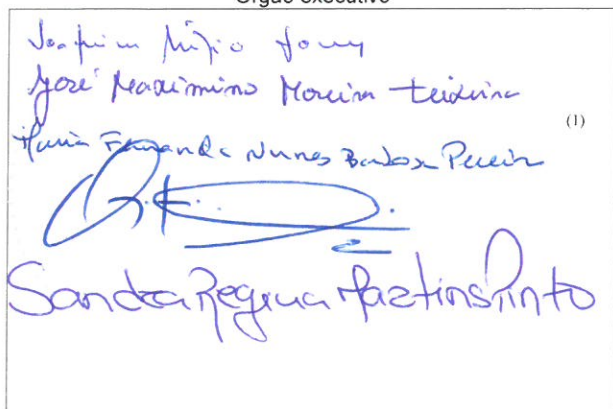 Órgão executivo
Joaquim
José Maximino Moreira Teixeira
(1)
Maria Fernanda Nunes Barbosa Pereira
Sandra Regina Martins Pinto